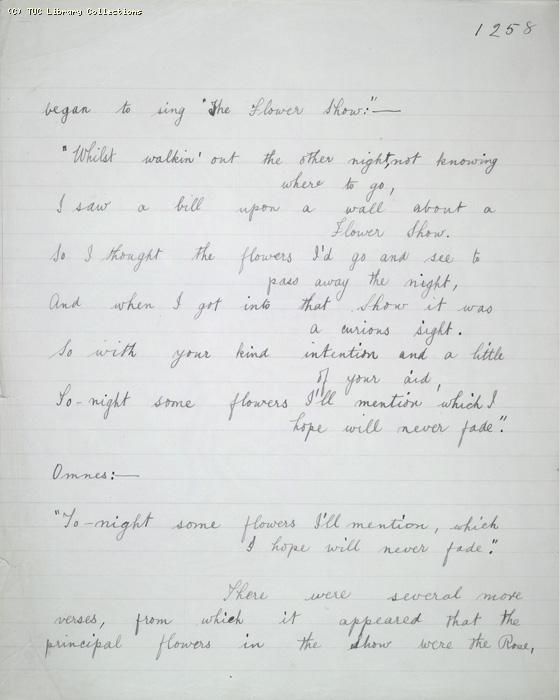 (C) TUC Library Collections
1258
began to sing "The Flower Show:"—
"Whilst walkin' out the other night, not knowing
where to go,
I saw a bill upon a wall about a
Flower Show.
So I thought the flowers I'd go and see to
pass away the night,
And when I got into that Show it was
a curious sight.
So with your kind intention and a little
of your aid,
To-night some flowers I'll mention which I
hope will never fade".
Omnes:—
"To-night some flowers I'll mention, which
I hope will never fade".
There were several more
verses, from which it appeared that the
principal flowers in the Show were the Rose,